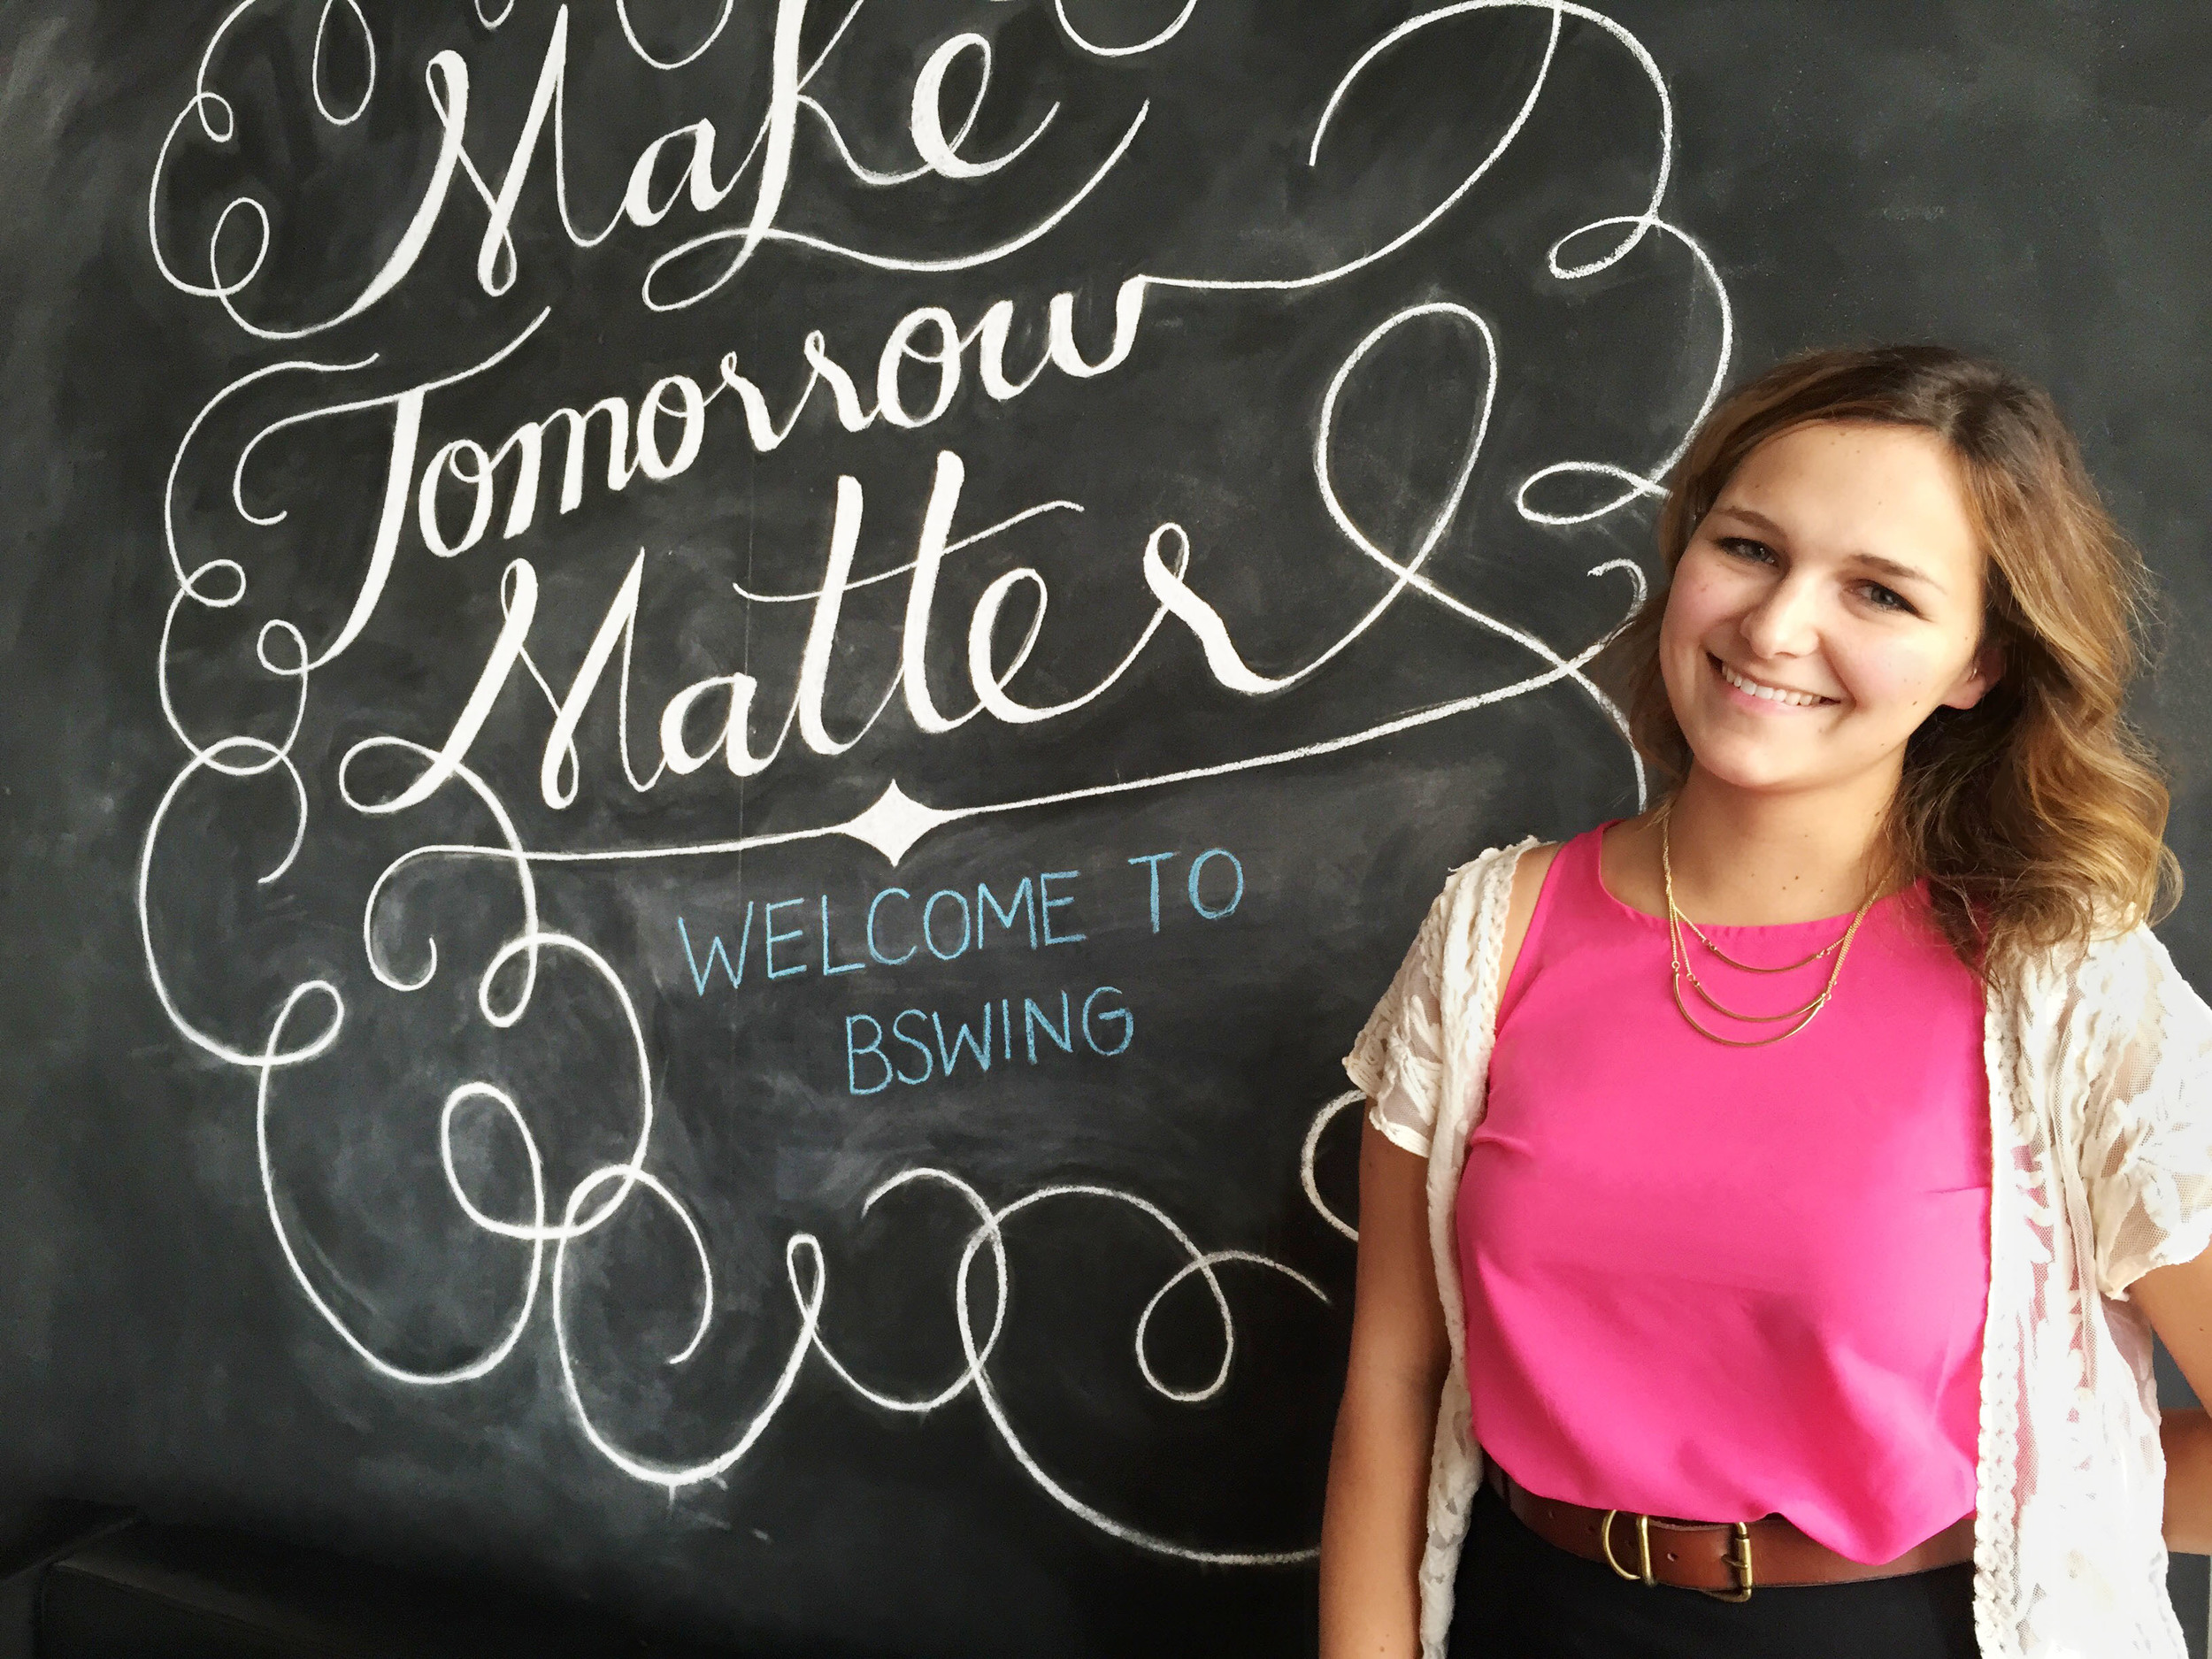 Make
Tomorrow
Matter
WELCOME TO
BSWING